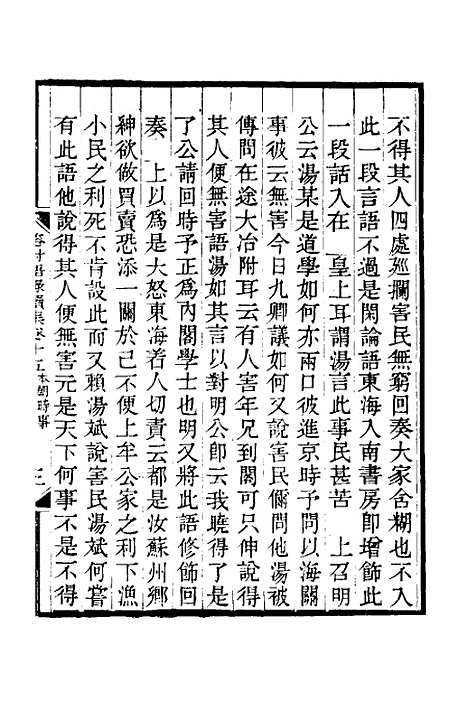 不得其人四處廵攔害民無窮回奏大家含糊也不入
此一段言語不過是閑論語東海入南書房即增飾此
一段話入在　皇上耳謂湯言此事民甚苦　上召明
公云湯某是道學如何亦兩口彼進京時予問以海關
事彼云無害今日九卿議如何又說害民儞問他湯被
傳問在途大冶附耳云有人害年兄到閣可只伸說得
其人便無害語湯如其言以對明公即云我曉得了是
了公請回時予正爲內閣學士也明又將此語修飾回
奏　上以爲是大怒東海若人切責云都是汝蘇州鄉
紳欲做買賣恐添一關於己不便上牟公家之利下漁
小民之利死不肯設此而又賴湯斌說害民湯斌何嘗
有此語他說得其人便無害元是天下何事不是不得
榕村語录續集卷十五本朝時事
三